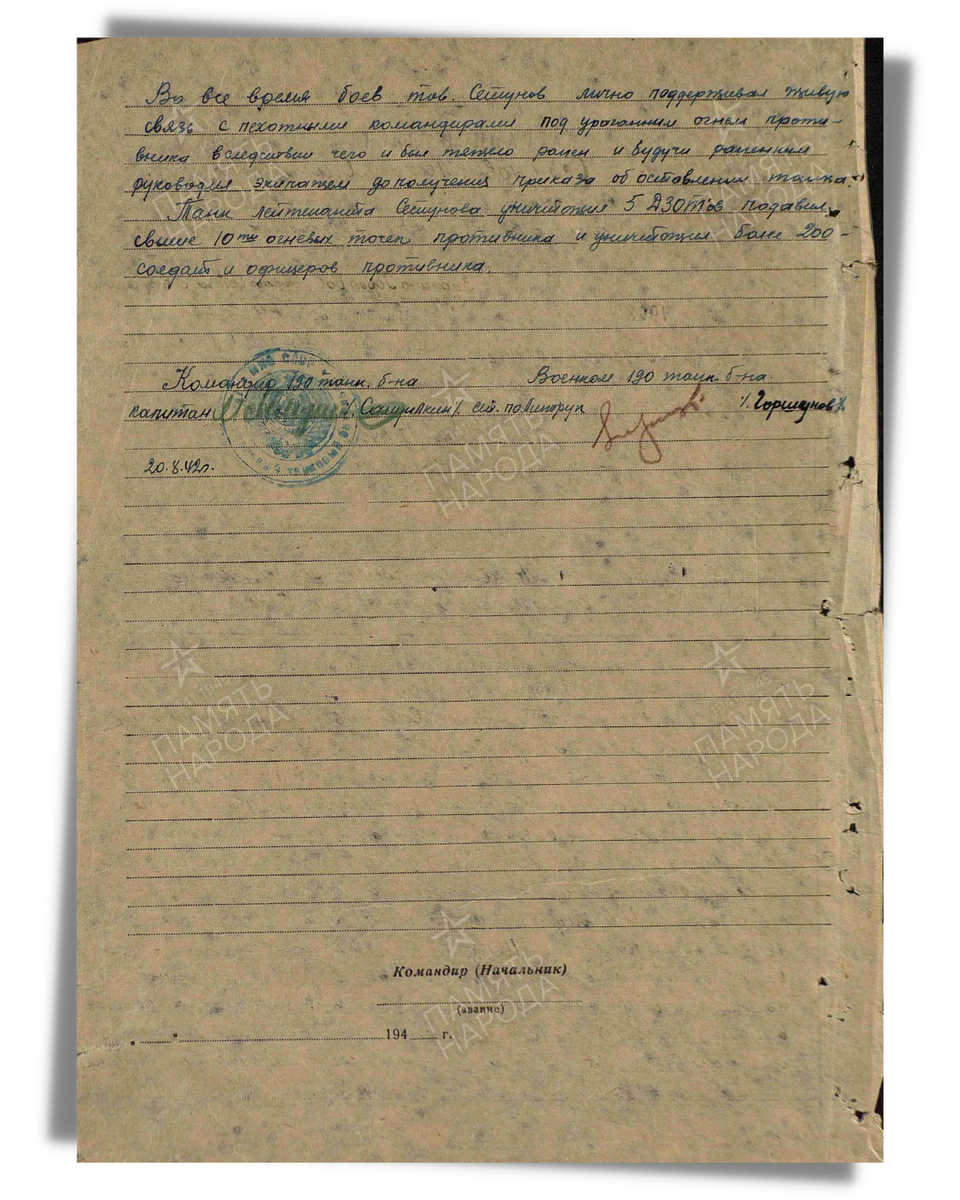 Во все время боев тов. Сетунов лично поддерживал живую
связь с пехотными командирами под ураганным огнем проти-
вника вследствии чего и был тяжело ранен и будучи раненным
руководил экипажем до получения приказа об оставлении танка.
Танк лейтенанта Сетунова уничтожил 5 ДЗОТов подавил
свыше 10ти огневых точек противника и уничтожил более 200-
солдат и офицеров противника.
Командир 190 танк. б-на Военком 190 танк. б-на.
капитан /Самилкин/ ст. политрук /Горшунов/.
20.8.42г.
ПАМЯТЬ
НАРОДА
ПАМЯТЬ
НАРОДА
ПАМЯТЬ
НАРОДА
Командир (Начальник)
ПАМЯТЬ
НАРОДА
(звание)
„ “ 194 г.